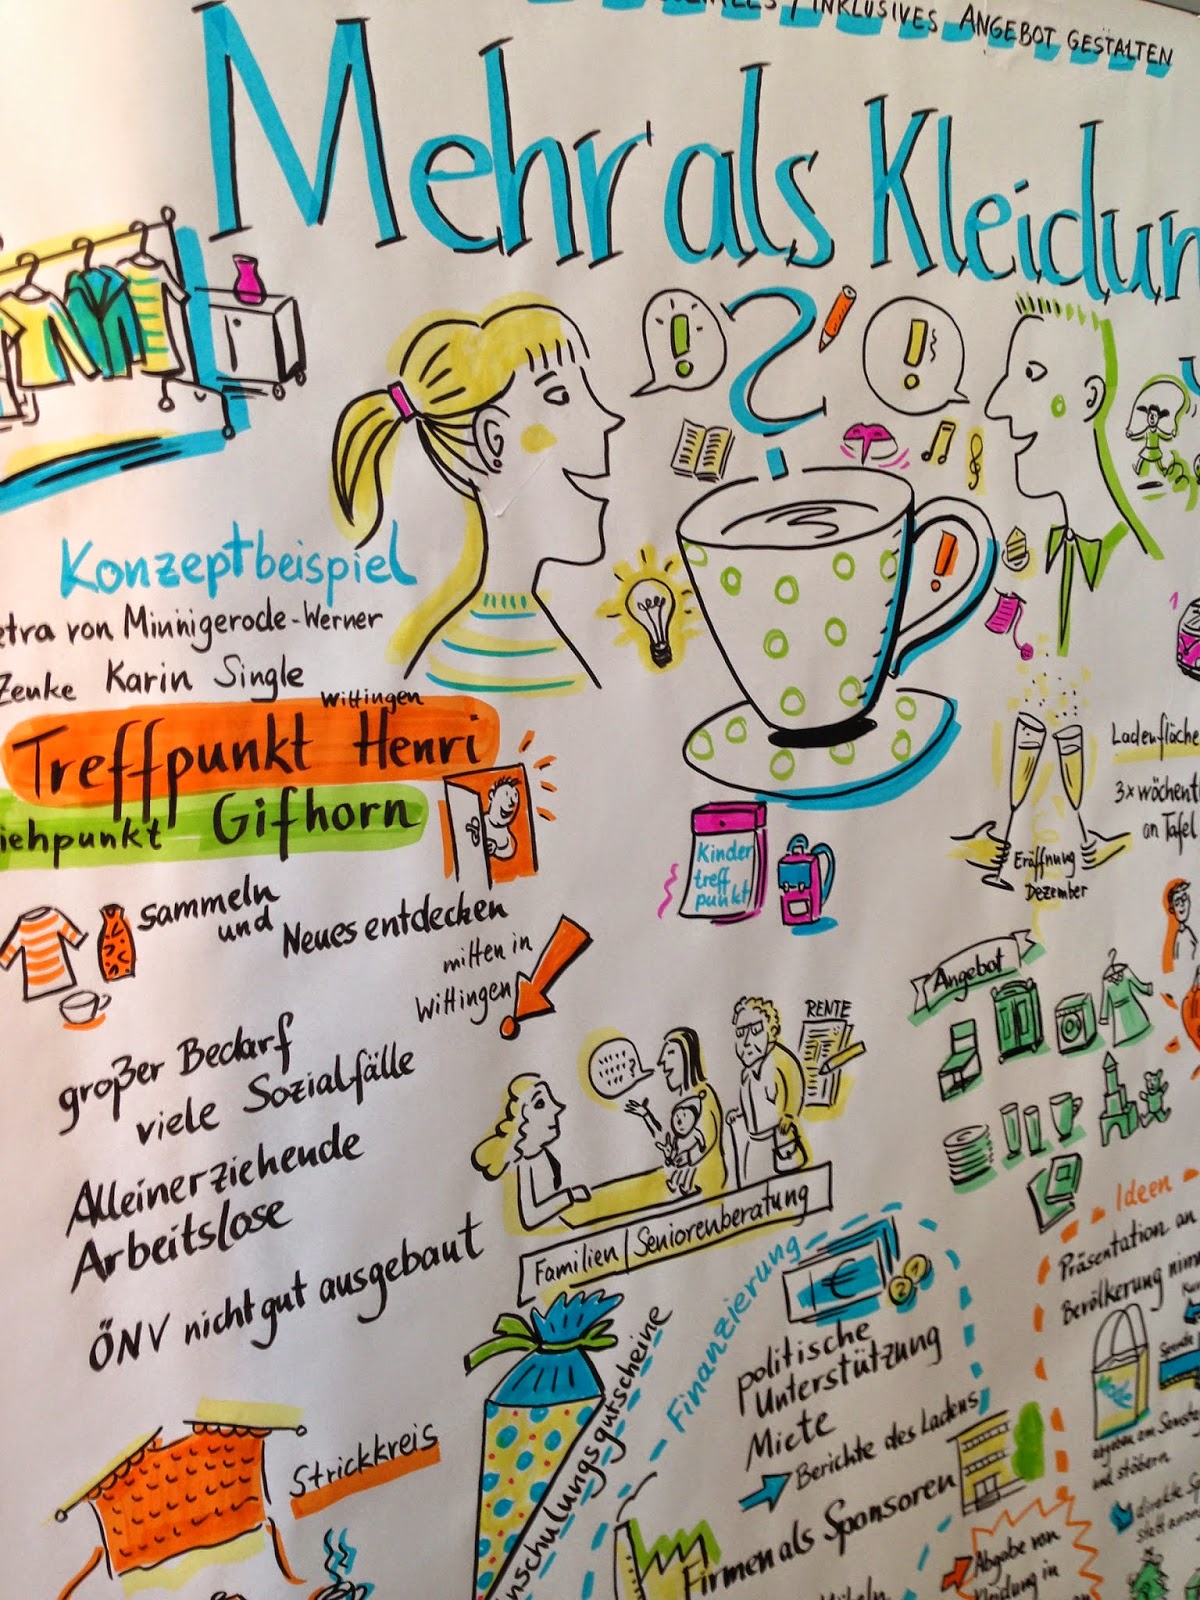 INKLUSIVES ANGEBOT GESTALTEN
Mehr als Kleidun
Konzeptbeispiel
etra von Minnigerode-Werner
Zenke Karin Single
Wittingen
Treffpunkt Henri
iehpunkt Gifhorn
sammeln
und
Neues entdecken
mitten in
Wittingen
großer Bedarf
viele Sozialfälle
Alleinerziehende
Arbeitslose
ÖNV nicht gut ausgebaut
Strickkreis
Kinder
treff
punkt
RENTE
Familien/Seniorenberatung
nschulungsgutscheine
Finanzierung
€
2 1
politische
Unterstützung
Miete
Berichte des Ladens
Firmen als Sponsoren
Möbeln
Eröffnung
Dezember
Ladenfläche
3x wöchent
an Tafel
Angebot
Ideen
Präsentation an
Bevölkerung
abgeben am
und stöbern
direkte
Abgabe von
Kleidung in